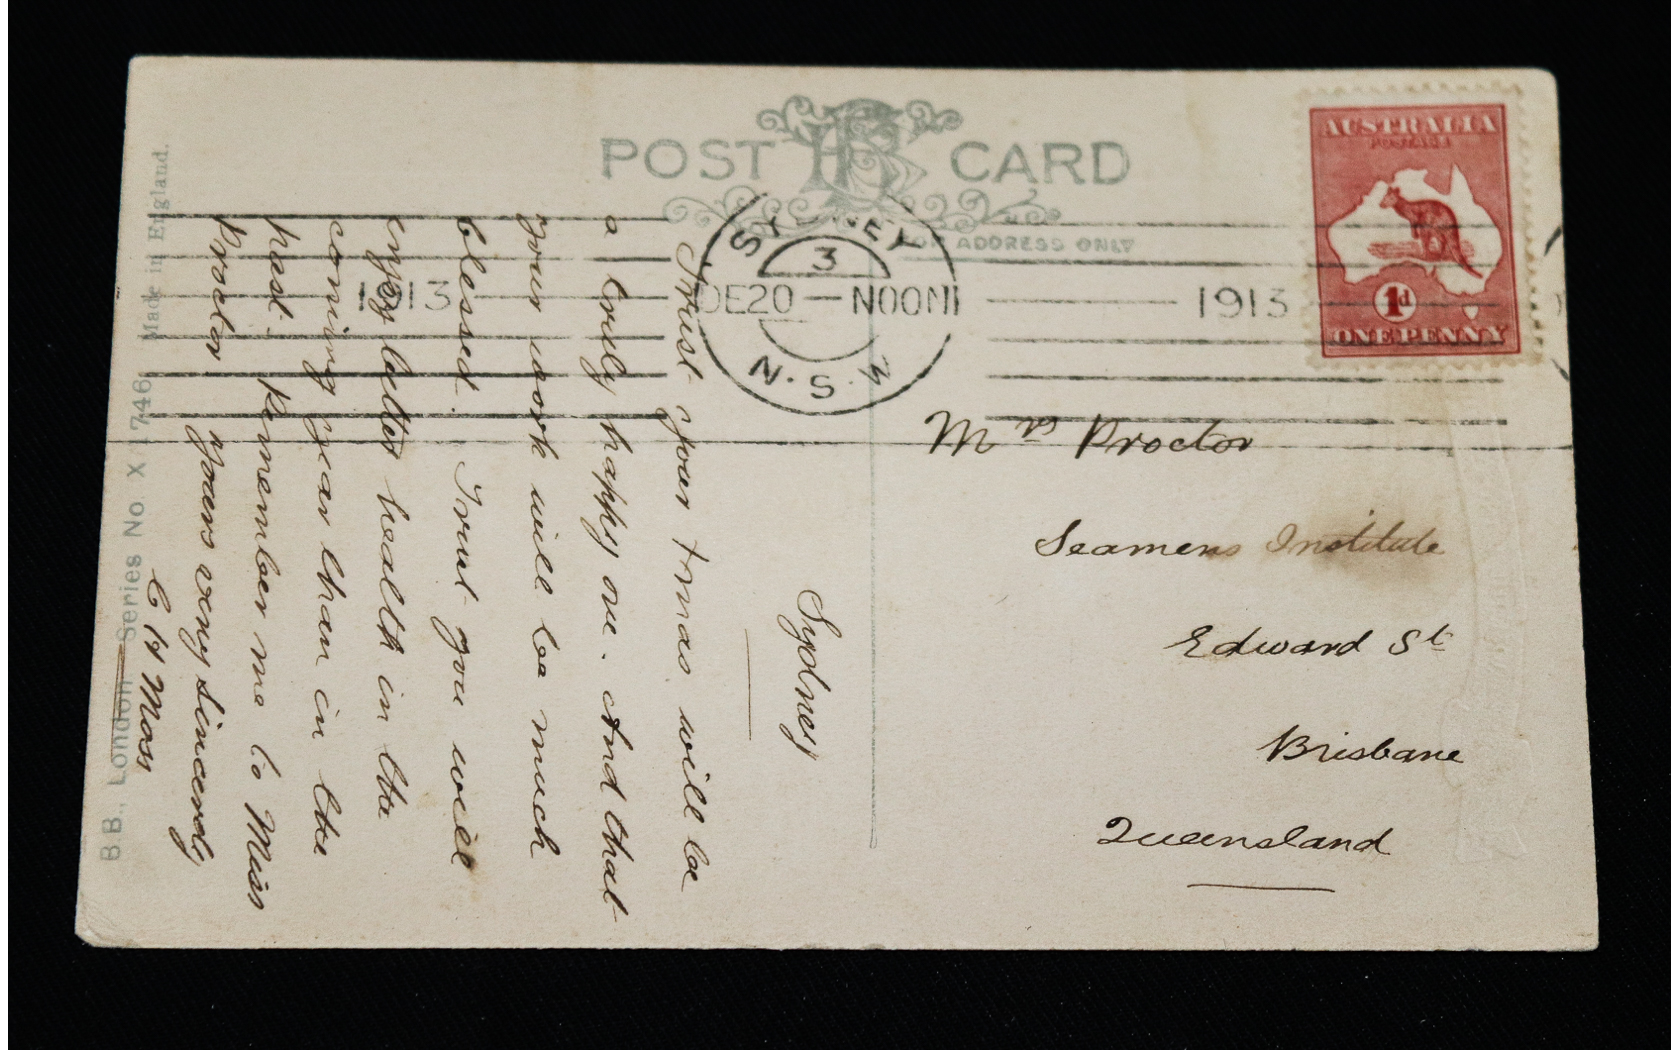 POST CARD
FOR ADDRESS ONLY
AUSTRALIA
POSTAGE
1d
ONE PENNY
SYDNEY
3
1913 DE20 — NOON 1913
N.S.W
Mrs Proctor
Seamens Institute
Edward St
Brisbane
Queensland
Sydney
Trust your Xmas will be
a truly happy one. And that
your work will be much
blessed. Trust you will
enjoy better health in the
coming year than in the
past. Remember me to Miss
Proctor yours very sincerely
C H Moss
B.B., London Series No X 1746 Made in England.